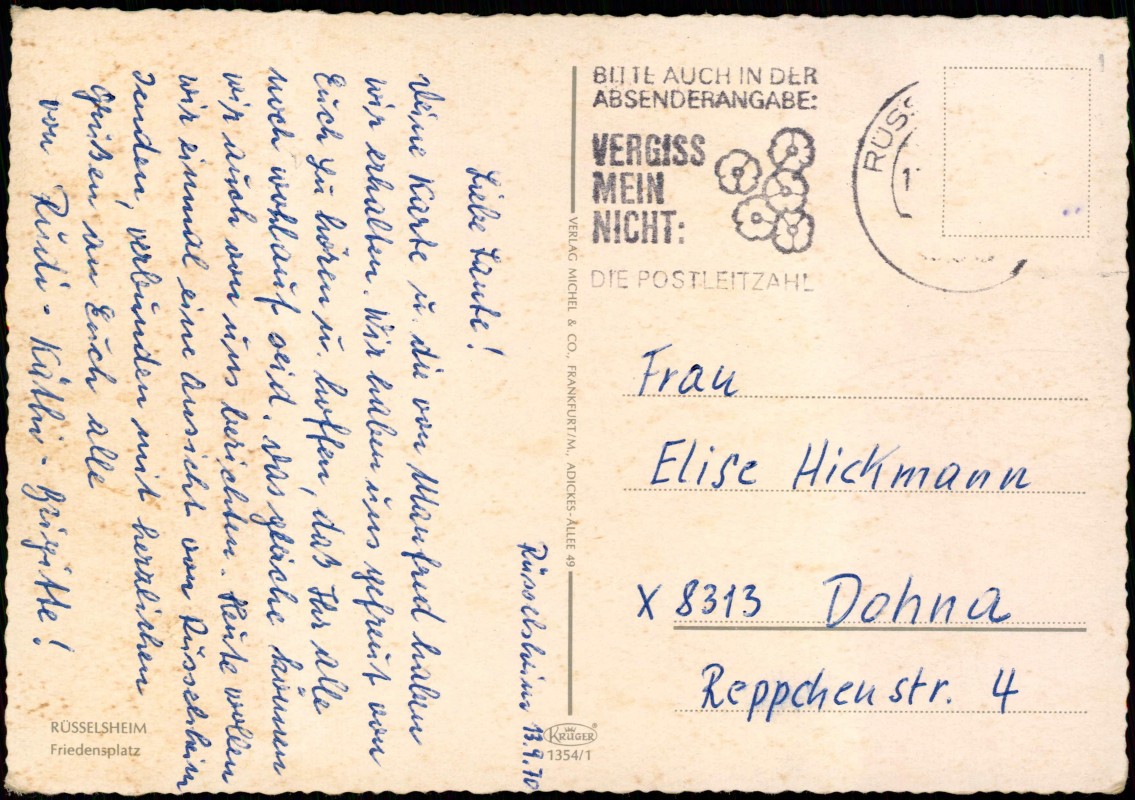 Rüsselsheim 13.9.70
Liebe Tante!
Deine Karte u. die von Manfred haben
wir erhalten. Wir haben uns gefreut von
Euch zu hören u. hoffen, daß Ihr alle
noch wohlauf seid. Das gleiche können
wir auch von uns berichten. Heute wollen
wir einmal eine Ansicht von Rüsselsheim
senden, verbunden mit herzlichen
Grüßen an Euch alle
von Rudi - Käthi - Brigitte!
RÜSSELSHEIM
Friedensplatz
VERLAG MICHEL & CO., FRANKFURT/M., ADICKES-ALLEE 49
KRÜGER
1354/1
BITTE AUCH IN DER
ABSENDERANGABE:
VERGISS
MEIN
NICHT:
DIE POSTLEITZAHL
RÜSS
Frau
Elise Hickmann
X 8313 Dohna
Reppchenstr. 4